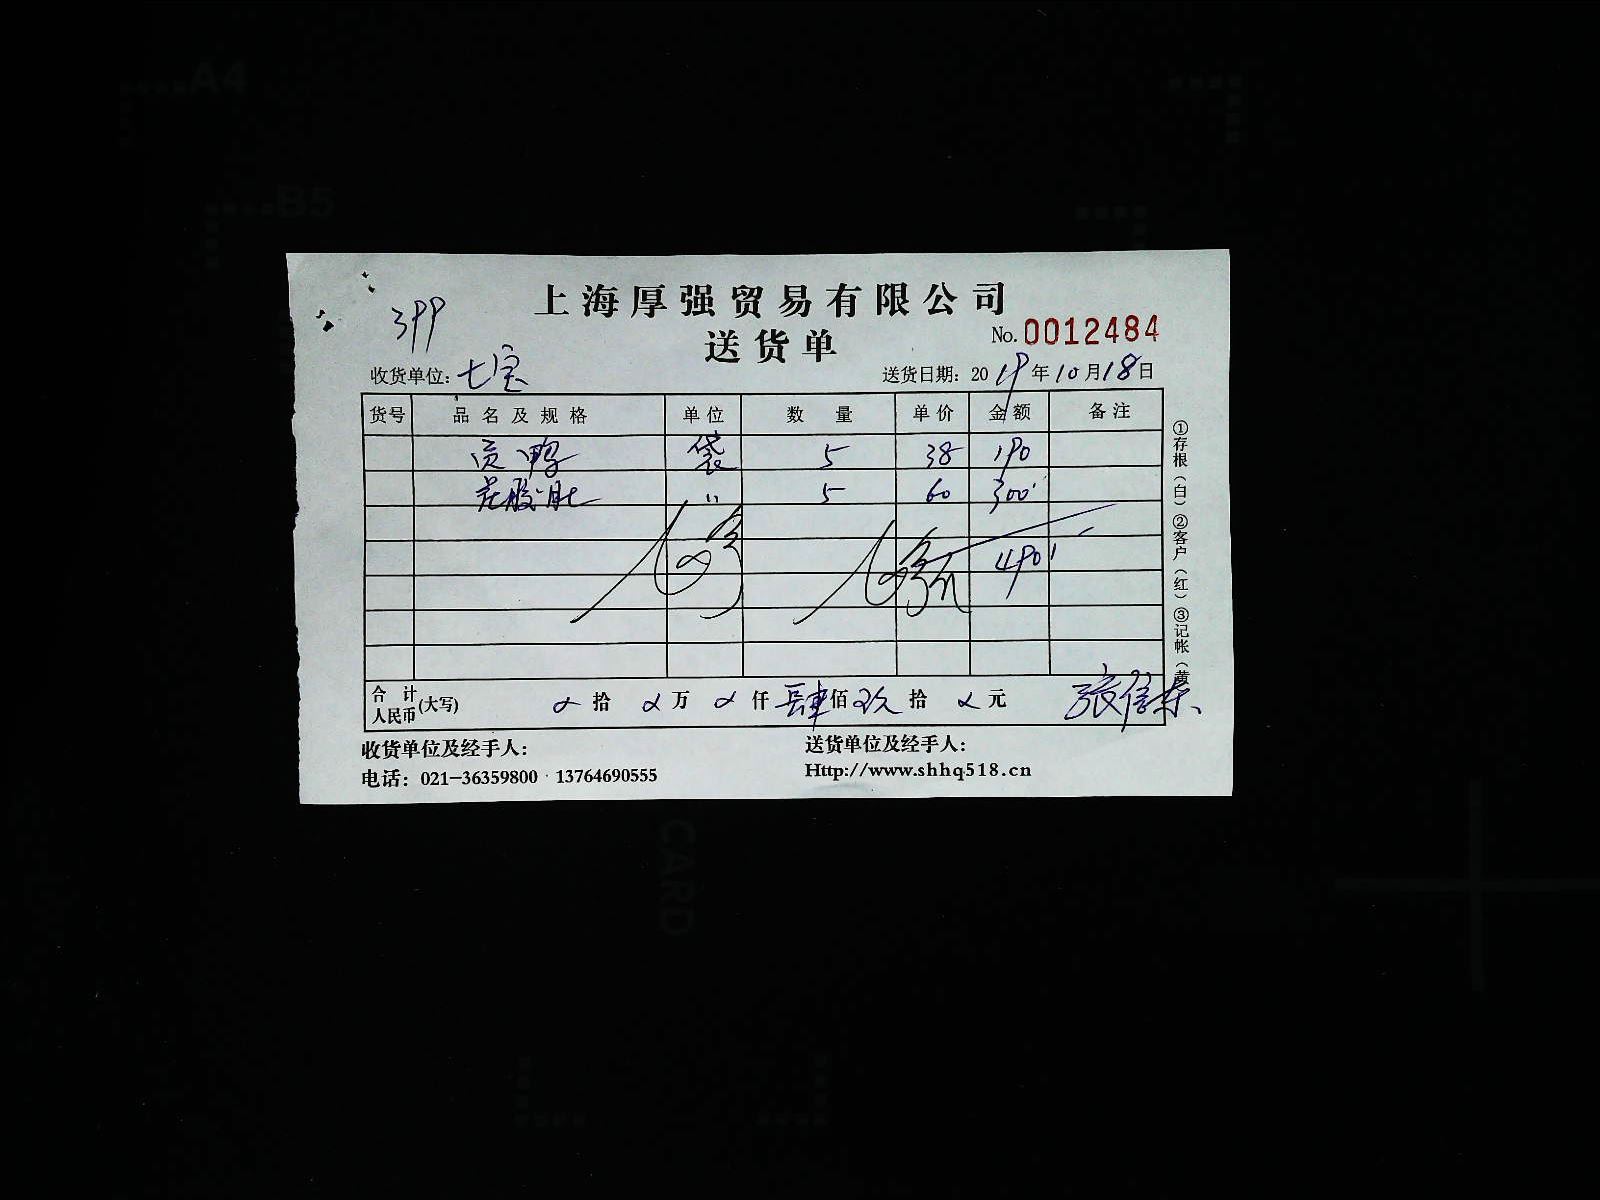 A4
B5
上海厚强贸易有限公司
399
送货单
No. 0012484
收货单位: 七宝
送货日期: 2019年10月18日
货号 品名及规格 单位 数量 单价 金额 备注
贡鸭 袋 5 38 190
〃 5 60 300
490
合计人民币(大写) 拾 万 仟 肆佰 玖拾 元
张信东
①存根(白)②客户(红)③记帐(黄
收货单位及经手人:
送货单位及经手人:
电话: 021-36359800·13764690555
Http://www.shhq518.cn
CARD